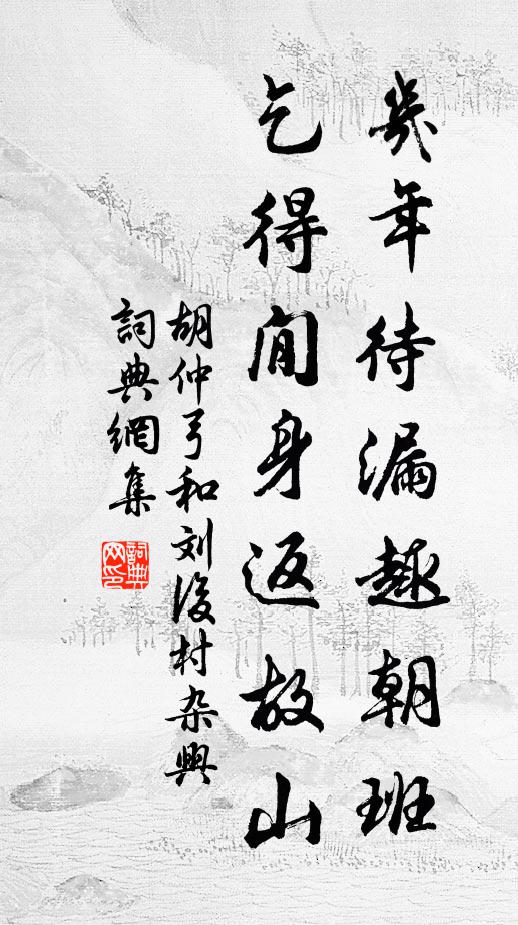 幾年待漏趨朝班
乞得閒身返故山
胡仲弓和刘後村杂興
詞典網集
詞典網印